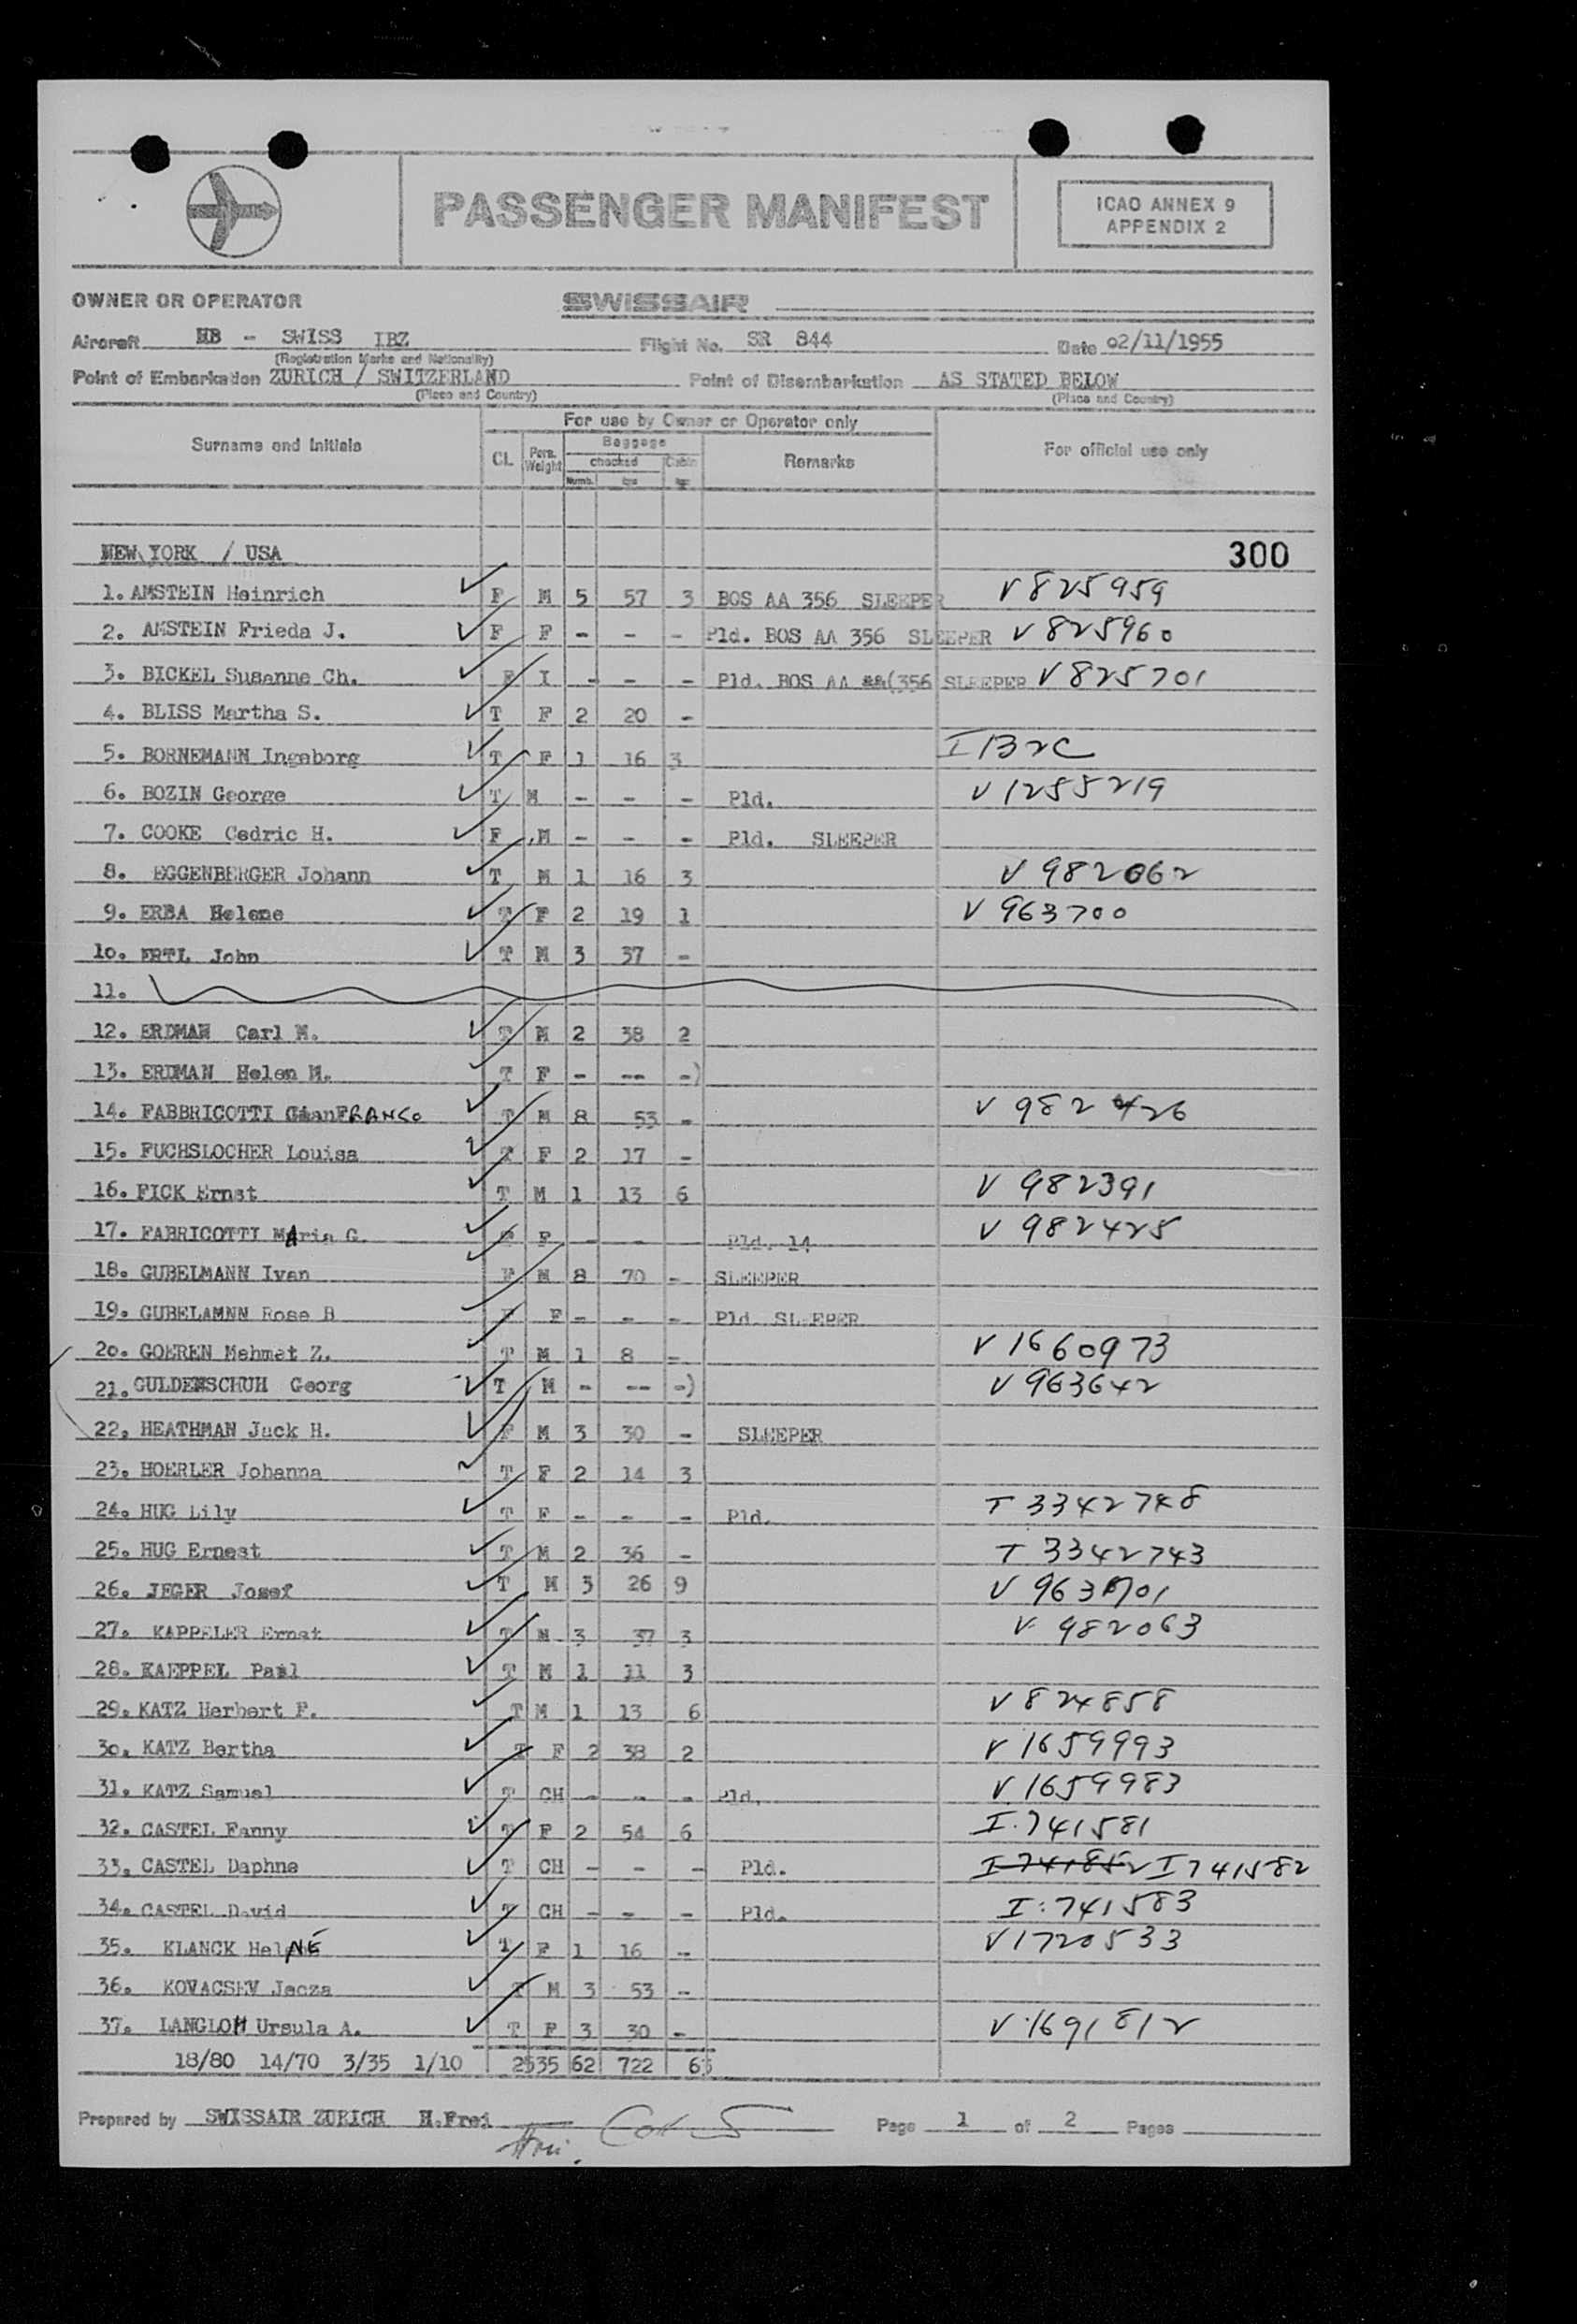 PASSENGER MANIFEST
ICAO ANNEX 9
APPENDIX 2
OWNER OR OPERATOR SWISSAIR
Aircraft HB - SWISS IBZ Flight No. SR 844 Date 02/11/1955
(Registration Marks and Nationality)
Point of Embarkation ZURICH / SWITZERLAND Point of Disembarkation AS STATED BELOW
(Place and Country) (Place and Country)
For use by Owner or Operator only
Surname and Initials CL. Pers. Weight Baggage checked Numb. kgs Cabin kgs Remarks For official use only
NEW YORK / USA 300
1. AMSTEIN Heinrich F M 5 57 3 BOS AA 356 SLEEPER V 825959
2. AMSTEIN Frieda J. F F - - - Pld. BOS AA 356 SLEEPER V 825960
3. BICKEL Susanne Ch. F I - - - Pld. BOS AA &&(356 SLEEPER V 825701
4. BLISS Martha S. T F 2 20 -
5. BORNEMANN Ingeborg T F 1 16 3 I B2C
6. BOZIN George T M - - - Pld. V 1255219
7. COOKE Cedric H. F M - - - Pld. SLEEPER
8. EGGENBERGER Johann T M 1 16 3 V 982062
9. ERBA Helene T F 2 19 1 V 963700
10. ERTL John T M 3 37 -
11.
12. ERDMAN Carl M. T M 2 38 2
13. ERDMAN Helen M. T F - -- -)
14. FABBRICOTTI GianFRANCO T M 8 53 - V 982426
15. FUCHSLOCHER Louisa T F 2 17 -
16. FICK Ernst T M 1 13 6 V 982391
17. FABRICOTTI MAria G. F - - Pld. 14 V 982425
18. GUBELMANN Ivan F M 8 70 - SLEEPER
19. GUBELAMNN Rose B F F - - - Pld. SLEEPER
20. GOEREN Mehmet Z. T M 1 8 - V 1660973
21. GULDENSCHUH Georg T M - -- -) V 963642
22. HEATHMAN Jack H. F M 3 30 - SLEEPER
23. HOERLER Johanna T F 2 14 3
24. HUG Lily T F - - - Pld. T 3342748
25. HUG Ernest T M 2 36 - T 3342743
26. JEGER Josef T M 3 26 9 V 963701
27. KAPPELER Ernst T M 3 37 3 V 982063
28. KAEPPEL Paul T M 1 11 3
29. KATZ Herbert F. T M 1 13 6 V 824858
30. KATZ Bertha T F 2 38 2 V 1659993
31. KATZ Samuel T CH - - - Pld. V 1659983
32. CASTEL Fanny T F 2 54 6 I.741581
33. CASTEL Daphne T CH - - - Pld. I 741852 I 741582
34. CASTEL David T CH - - - Pld. I:741583
35. KLANCK HelNE T F 1 16 -- V 1720533
36. KOVACSEV Jecza T M 3 53 -
37. LANGLOH Ursula A. T F 3 30 - V 1691812
18/80 14/70 3/35 1/10 2535 62 722 63
Prepared by SWISSAIR ZURICH H.Frei Page 1 of 2 Pages